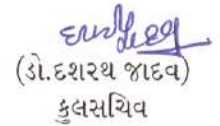 (ડો.દશરથ જાદવ)
કુલસચિવ